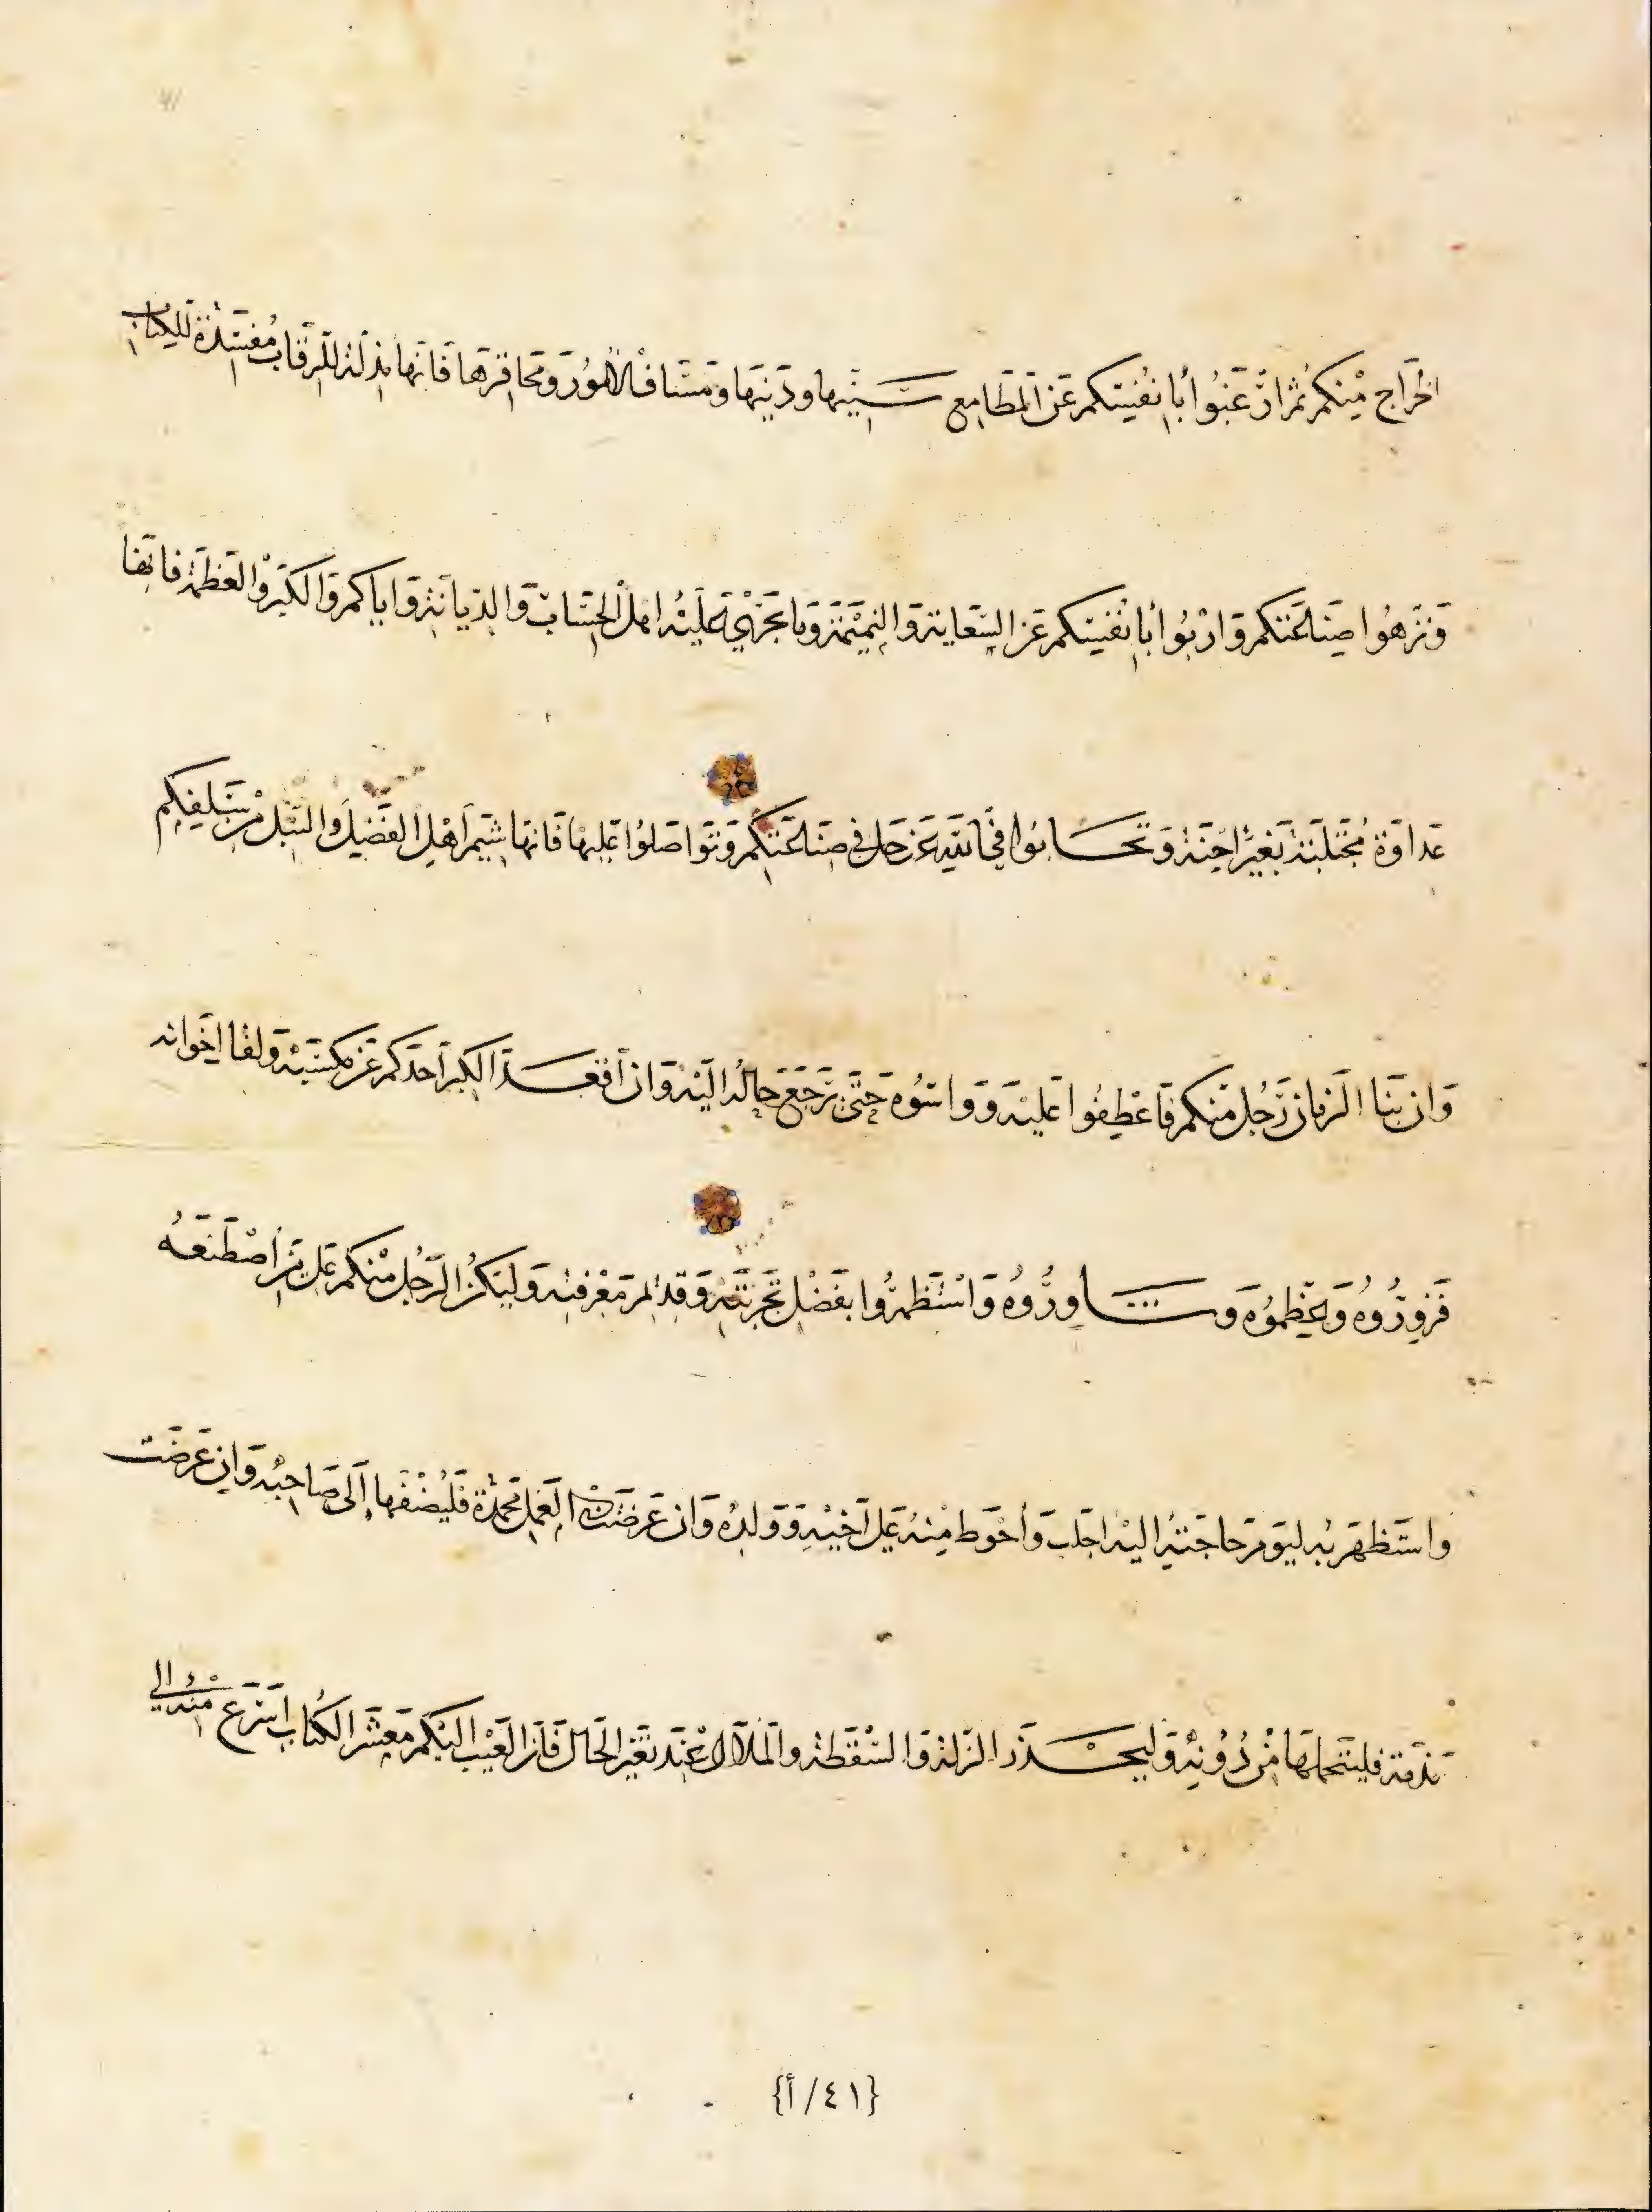 الخَراج مِنكم ثُمّ ارْغَبُوا بأنفُسِكم عَن المَطامع سَنِيّها ودَنِيّها ومَسَافّ الأمُور ومَحاقِرها فَانّها مذلّة للرّقاب مُفسِدَة للكتاب
وَنزّهُوا صِنَاعَتكم وَاربُوا بأنفسِكم عَن السّعَايَة وَالنّمِيمَة وَما يجرى عَلَيْه اهل الحِسَاب وَالديانة وَاياكم وَالكبْر وَالعَظمَة فانّها
عَداوَة مُجْتَلَبَة بغَيْر احِنَة وَتحَابّوا في الله عَزّ وجَل في صِنَاعَتكم وَتوَاصَلوُا عَليْها فَانهَا شِيَم أهْلِ الفَضل وَالنبْل مِن سَلَفِكم
وَان نبَا الزمَان برَجُل مِنكم فَاعْطِفُوا عَليْه وَوَاسُوه حَتّى يَرجَع حَالهُ اليْه وَان أقعَدَ الكبر أحَدكم عَن مَكسَبه وَلقا اخوانه
فَزوروُه وَعَظّموُه وَشاوِرُوه وَاسْتَظهرُوا بفَضْل تَجربَته وَقدَم مَعْرفته وَليَكن الرّجُل مِنكم عَلى مَن اصْطَنَعَهُ
وَاستَظهَر به ليَوم حَاجَته اليْه احدب وَأحْوَط مِنهُ عَلى أخِيهِ وَوَلدِه وَان عَرضَت في العَمل مَحْمَدَة فَليُضفهَا إلَى صَاحِبه وَان عَرضَت
مَذمّة فليَتحَملهَا مِن دُونِهِ وَليَحْذَر الزلة وَالسّقطَة وَالمَلال عِنْد تغَير الحَال فَان العَيْب اليْكم مَعشَر الكُتاب اسْرَع مِنهُ الي
{٤١/أ}